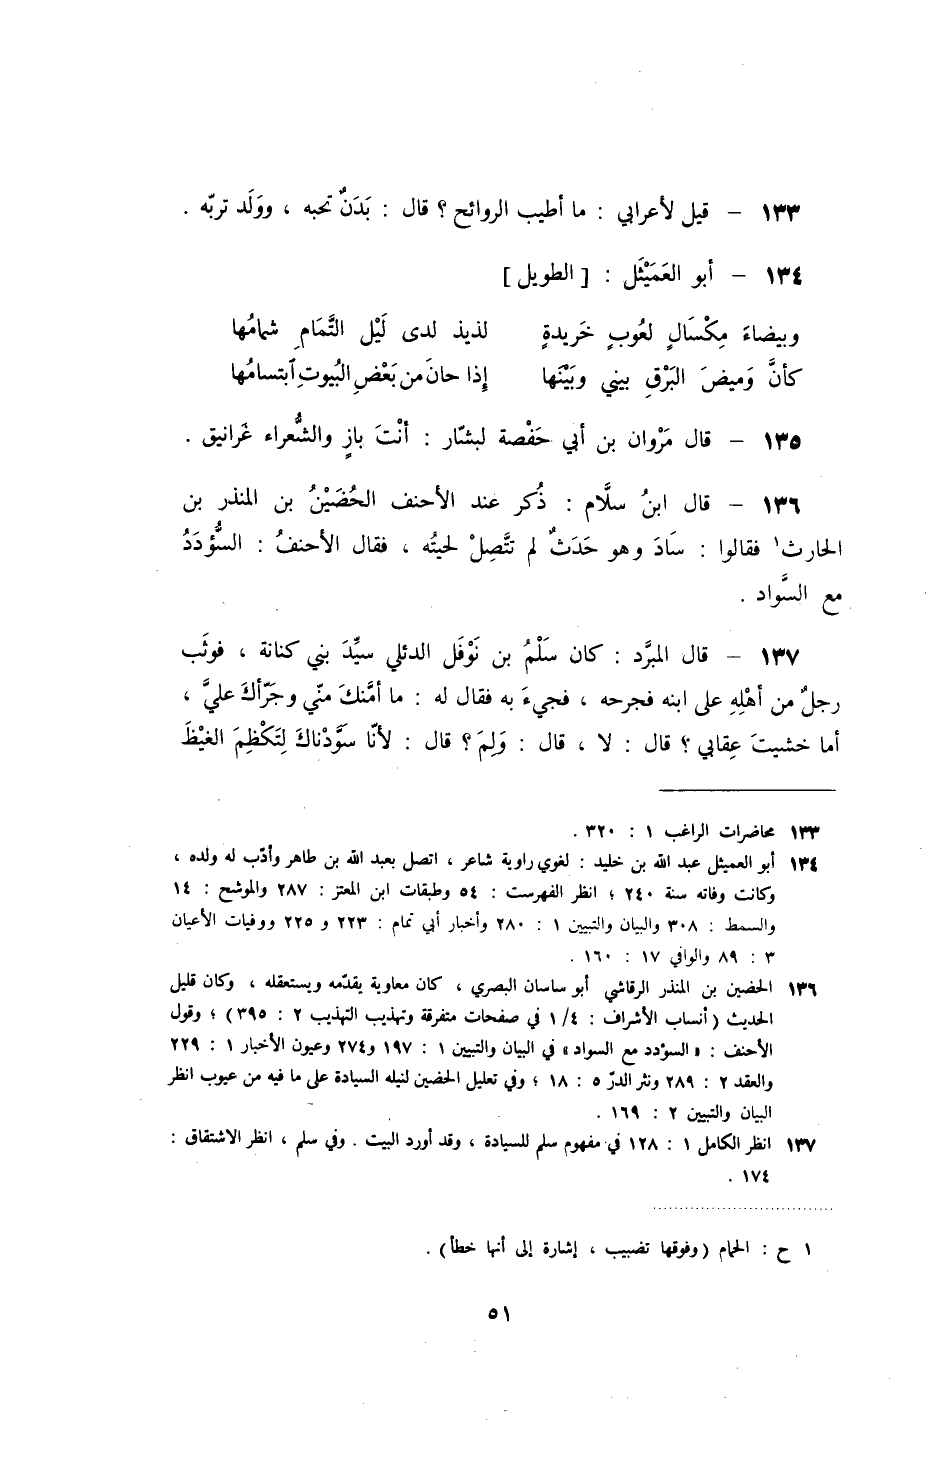 ١٣٣ – قيل لأعرابي : ما أطيب الروائح ؟ قال : بَدَنٌ تحبه ، ووَلَد تربّه .
١٣٤ – أبو العَمَيْثَل : [ الطويل ]
وبيضاءَ مِكْسَالٍ لعُوبٍ خَريدةٍ لذيذ لدى لَيْل التَّمَامِ شمامُها
كأنَّ وَميضَ البَرْقِ بيني وبَيْنَها إذا حانَ من بَعْضِ البُيوتِ ٱبتسامُها
١٣٥ – قال مَرْوان بن أبي حَفْصة لبشّار : أنْتَ بازٍ والشُّعراء غَرانيق .
١٣٦ – قال ابنُ سلَّام : ذُكر عند الأحنف الحُضَيْنُ بن المنذر بن
الحارث١ فقالوا : سَادَ وهو حَدَثٌ لم تتَّصِلْ لحيتُه ، فقال الأحنفُ : السُّؤدَدُ
مع السَّواد .
١٣٧ – قال المبرَّد : كان سَلْمُ بن نَوْفَل الدئلي سيِّدَ بني كنانة ، فوثَب
رجلٌ من أهْلِهِ على ابنه فجرحه ، فجيءَ به فقال له : ما أمَّنكَ منّي وجَرّأكَ عليَّ ،
أما خشيتَ عِقابي ؟ قال : لا ، قال : وَلِمَ ؟ قال : لأنّا سَوَّدْناكَ لِتَكْظِمَ الغيْظَ
١٣٣ محاضرات الراغب ١ : ٣٢٠ .
١٣٤ أبو العميثل عبد الله بن خليد : لغوي راوية شاعر ، اتصل بعبد الله بن طاهر وأدّب له ولده ،
وكانت وفاته سنة ٢٤٠ ؛ انظر الفهرست : ٥٤ وطبقات ابن المعتز : ٢٨٧ والموشح : ١٤
والسمط : ٣٠٨ والبيان والتبيين ١ : ٢٨٠ وأخبار أبي تمام : ٢٢٣ و ٢٢٥ ووفيات الأعيان
٣ : ٨٩ والوافي ١٧ : ١٦٠ .
١٣٦ الحضين بن المنذر الرقاشي أبو ساسان البصري ، كان معاوية يقدّمه ويستعقله ، وكان قليل
الحديث (أنساب الأشراف : ١/٤ في صفحات متفرقة وتهذيب التهذيب ٢ : ٣٩٥) ؛ وقول
الأحنف : «السؤدد مع السواد» في البيان والتبيين ١ : ١٩٧ و٢٧٤ وعيون الأخبار ١ : ٢٢٩
والعقد ٢ : ٢٨٩ ونثر الدرّ ٥ : ١٨ ؛ وفي تعليل الحضين لنيله السيادة على ما فيه من عيوب انظر
البيان والتبيين ٢ : ١٦٩ .
١٣٧ انظر الكامل ١ : ١٢٨ في مفهوم سلم للسيادة ، وقد أورد البيت . وفي سلم ، انظر الاشتقاق :
١٧٤ .
١ ح : الحمام (وفوقها تضبيب ، إشارة إلى أنها خطأ) .
٥١